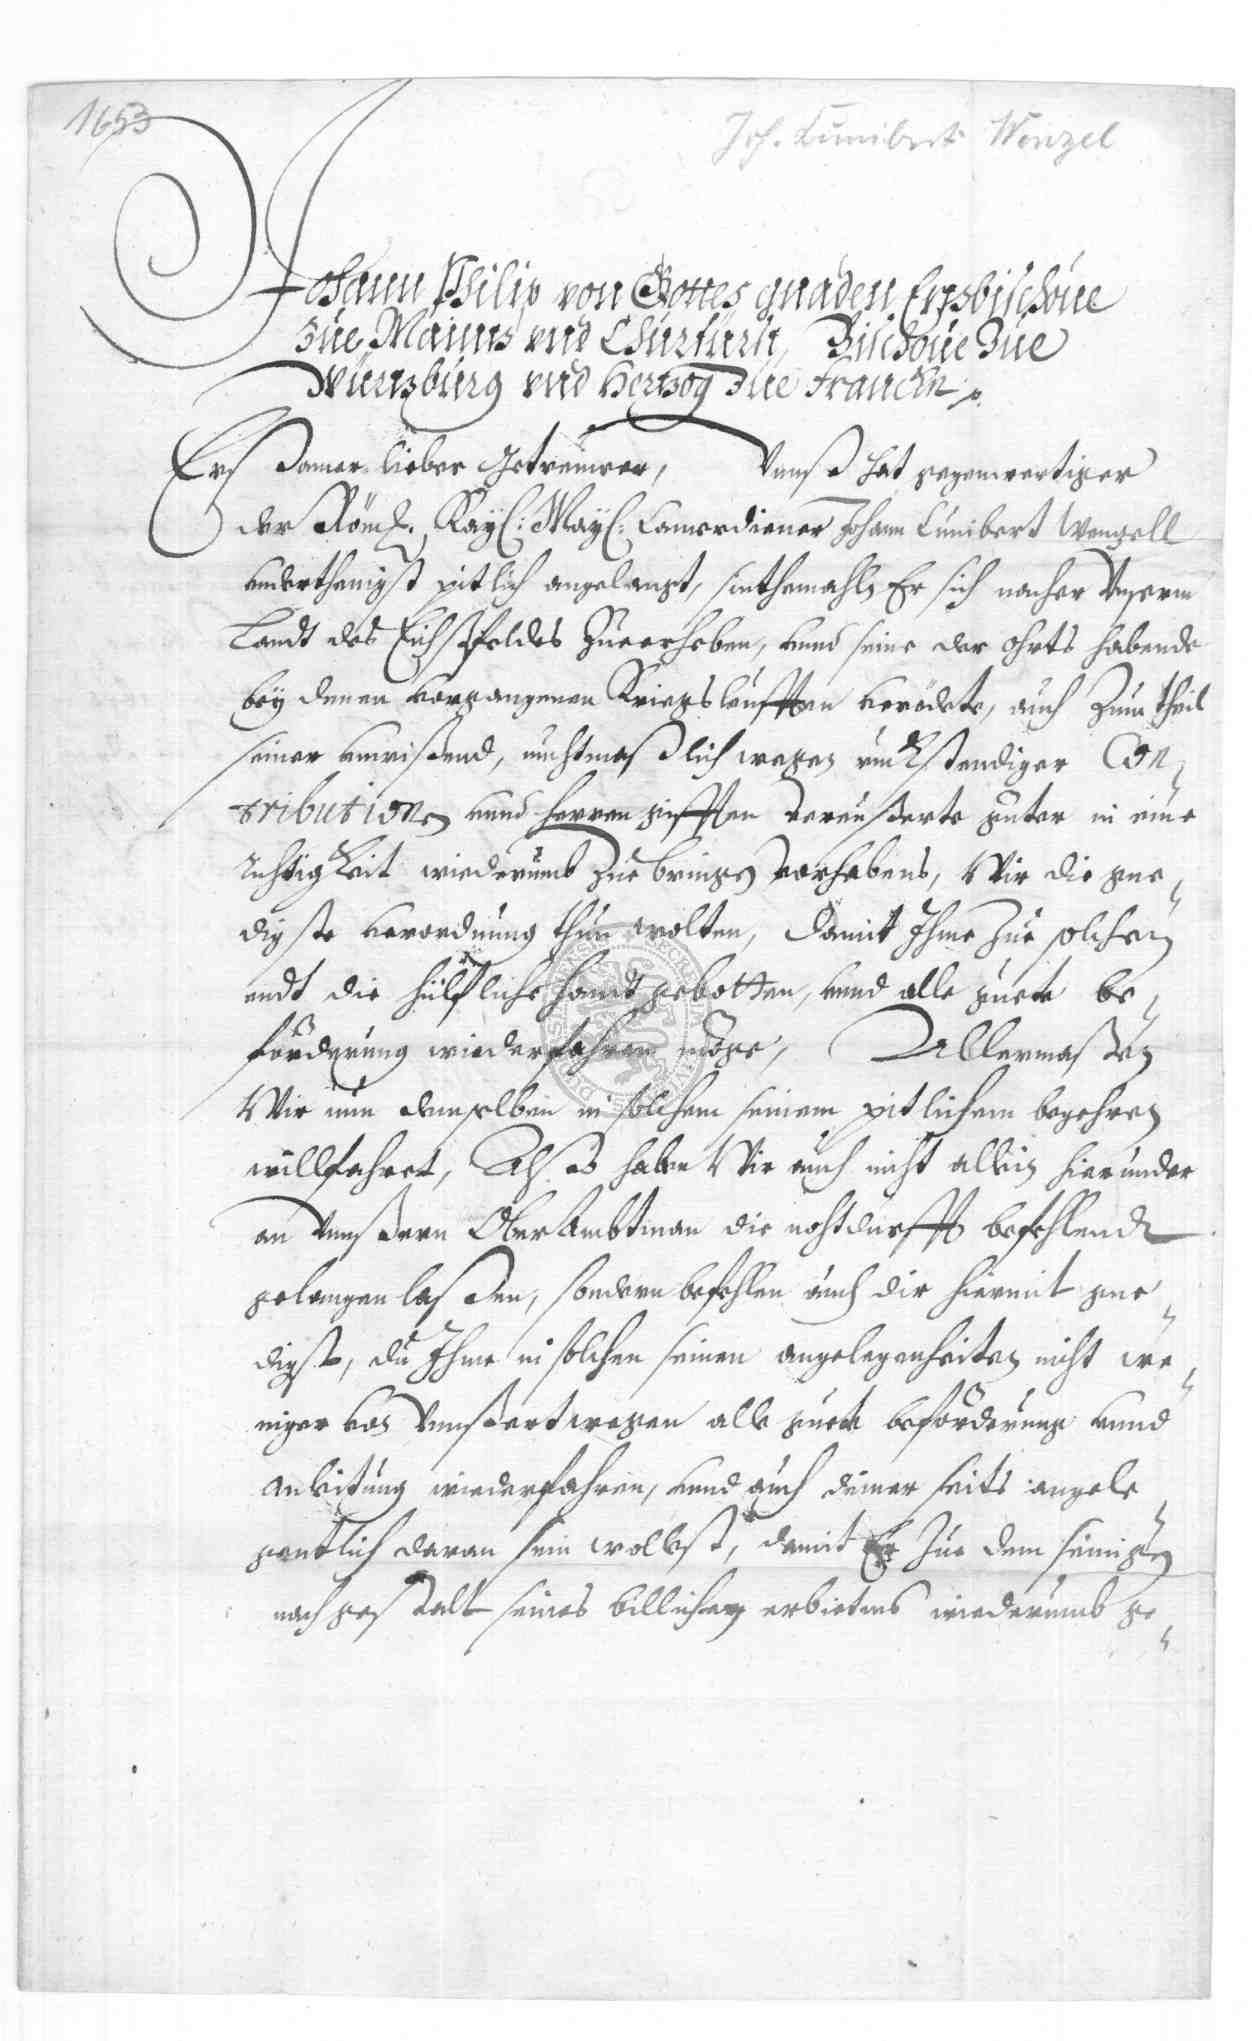 1653
Joh. Cunibert Wenzel
Johann Philip von Gottes gnaden Ertzbischoue
Zue Maintz vnd Churfürst, Bischoue Zue
Würtzburg vnd Hertzog Zue Francken p.
Ersamer lieber Getreuwer, Vnnß hat gegenwertiger
der Röm. Kayß: Mayß: Camerdiener Johann Cunibert Wenzell
vnderthenigst pitlich angelangt, sinthemahln Er sich nacher Vnserm
Landt des Eichßfeldes Zue erheben, vnnd seine der ohrts habende
bey denen vorgangenen Kriegsleufften verödete, auch Zum theil
seiner vnwißend, muthmaßlich wegen rückstendiger Con¬
tributionen vnnd herren gifften vereußerte güter in eine
richtigkeit wiederumb Zue bringen vorhabens, Wir die gne¬
digste verordnung thun wolten, damit Ihme Zue solchem
endt die hülfliche handt gebotten, vnnd alle guete be¬
förderung wiederfahren möge, Allermaßen
Wir nun demselben in solchem seinem pitlichem begehren
willfahret, Alß haben Wir auch nicht allein hierunder
an Vnnßern OberAmbtman die nohtdurfft befehlendt
gelangen laßen, sondern befehlen auch dir hiermit gne¬
digst, du Ihme in solchen seinen angelegenheiten nicht we¬
niger von Vnnßertwegen alle guete beförderung vnnd
anleitung wiederfahren, vnnd auch deiner seits angele¬
gentlich daran sein wollest, damit Er Zue dem seinigen
nach gestalt seines billichen erbietens wiederumb ge¬